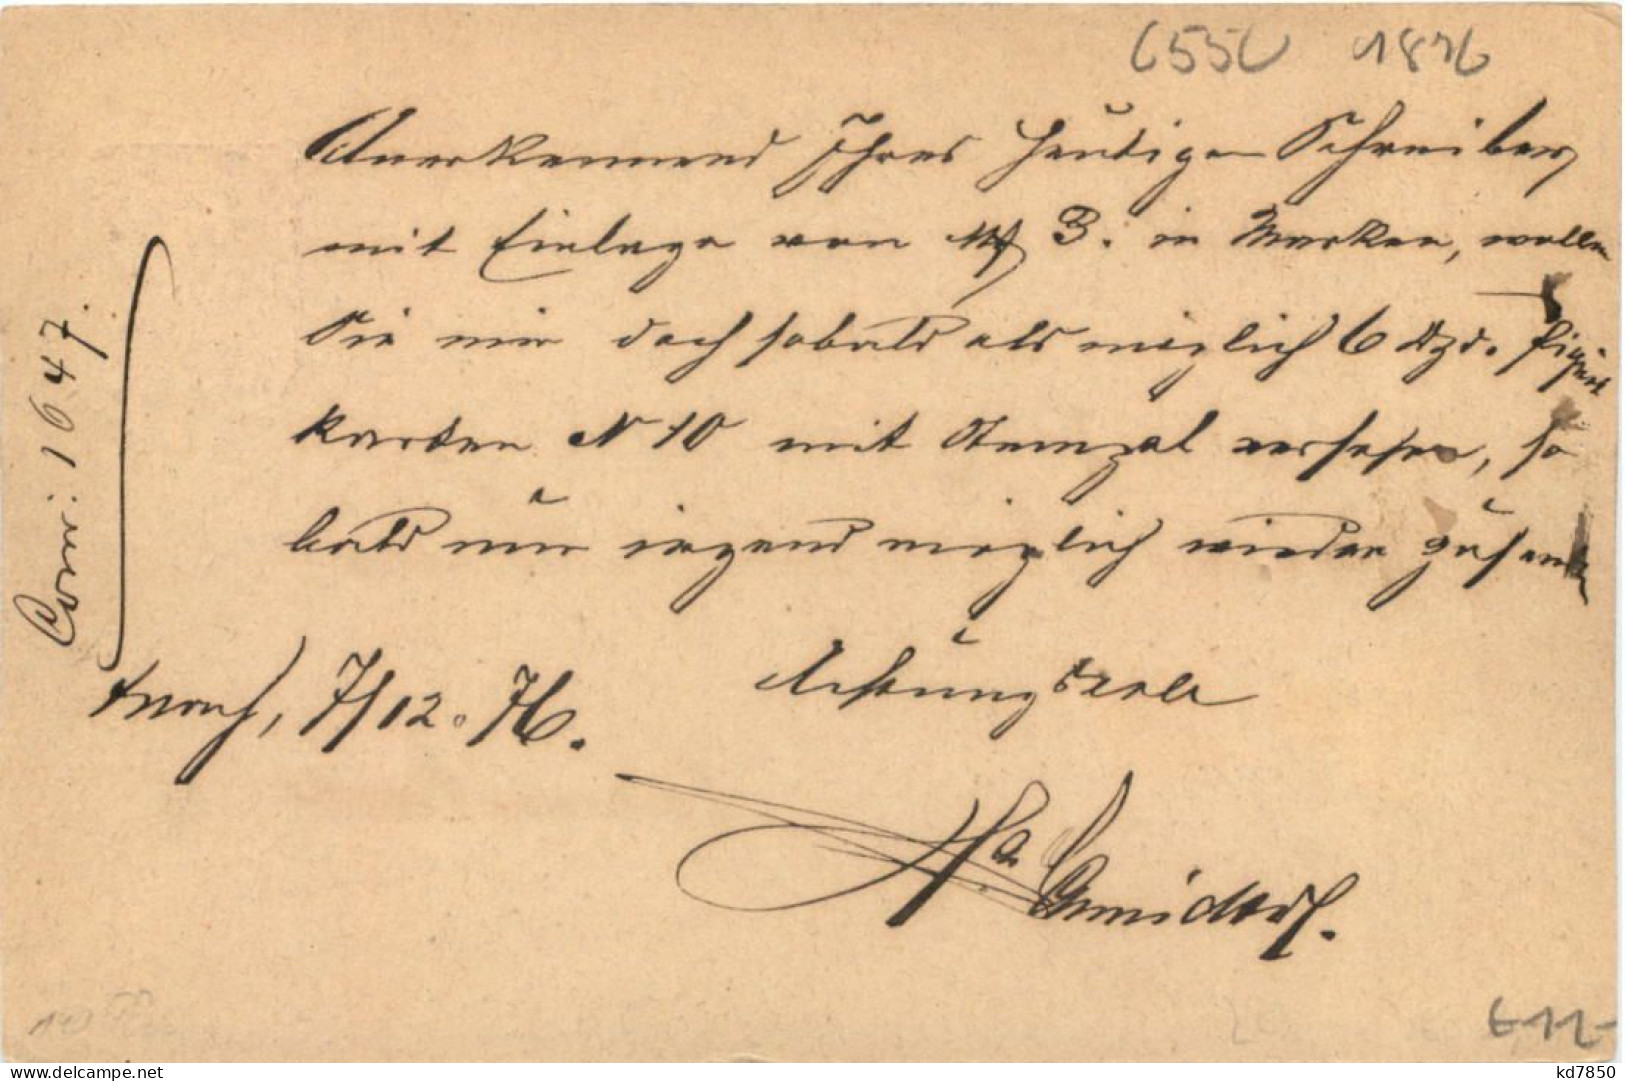 6550 1876
Anerkennend Ihres heutigen Schreibens,
mit Einlage von M 3. in Marken, wollen
Sie mir doch sobald als möglich 6 Dzd.
karten N 10 mit Stempel versehen, so
bald nur irgend möglich wieder zusenden
Corr: 1647.
7/12. 76.
Achtungsvoll
€ 12-
kd7850